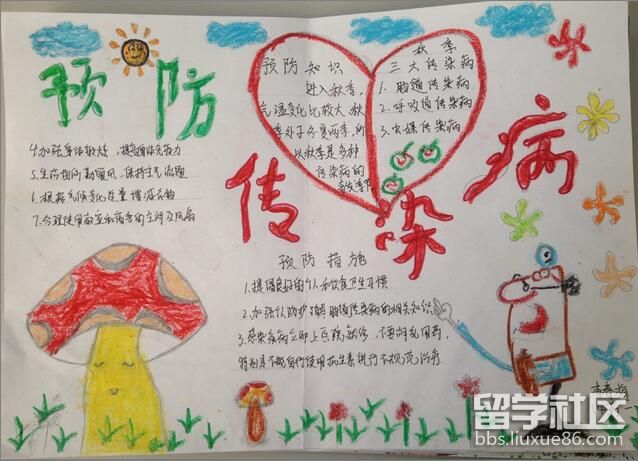 预防
传染病
预防知识
进入秋季,
气温变化比较大 秋
季处于冬夏两季,所
以秋季是多种
传染病的
高发季节
秋季
三大传染病
1. 肠道传染病
2. 呼吸道传染病
3. 虫媒传染病
4.加强身体锻炼,提高自身免疫力
5.
6.根据气候变化适量增减衣物
7.合理使用教室和宿舍的空调及风扇
预防措施
1.提倡良好的个人和饮食卫生习惯
2.加强认防护了解肠道传染病的相关知识
3.感染疾病立即上医院就诊,不要胡乱用药,
特别是不能自行使用抗生素进行不规范治疗
留学社区
bbs.liuxue86.com